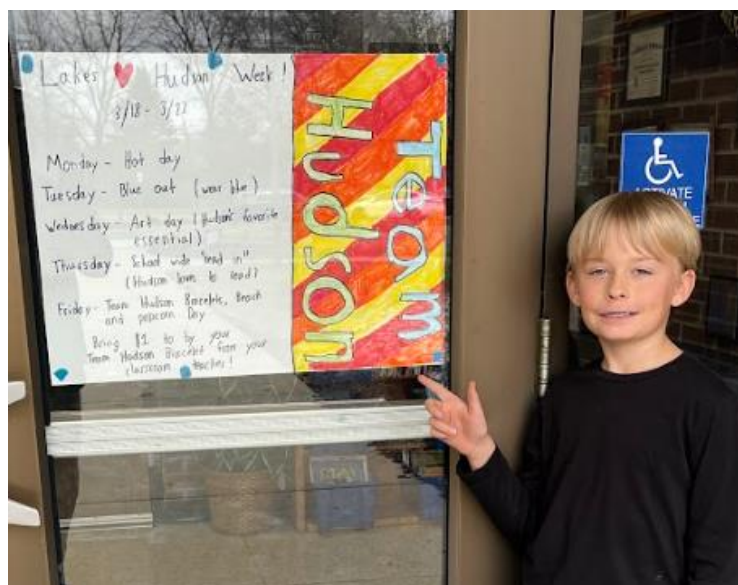 Lakes ♥ Hudson Week!
3/18 - 3/22
Monday - Hat day
Tuesday - Blue out (wear blue)
Wednesday - Art day (Hudson's favorite
essential)
Thursday - School wide "read in"
(Hudson loves to read)
Friday - Team Hudson Bracelets, Beach
and popcorn Day
Bring $1 to by your
Team Hudson Bracelet from your
classroom teacher!
Team
Hudson